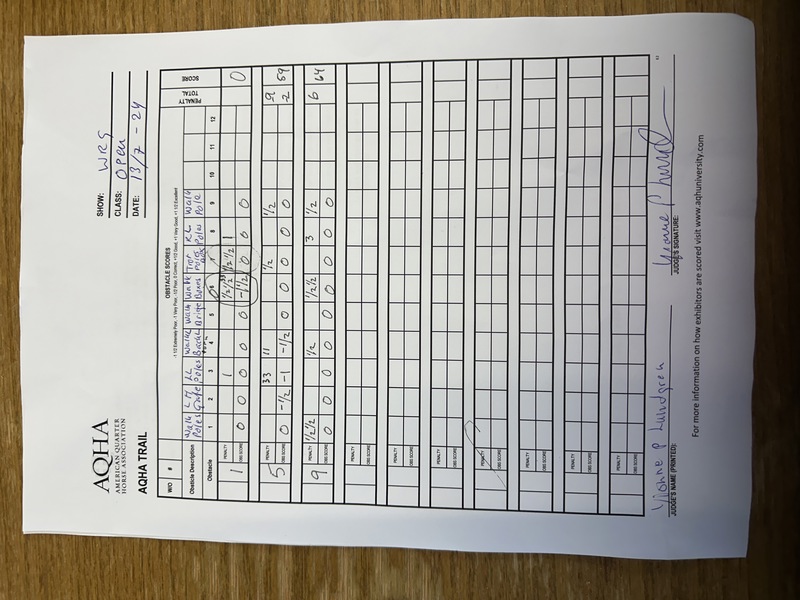 AQHA
AMERICAN QUARTER
HORSE ASSOCIATION
AQHA TRAIL
SHOW: WRS
CLASS: OPEN
DATE: 13/7 - 24
OBSTACLE SCORES
-1 1/2 Extremely Poor, -1 Very Poor, -1/2 Poor, 0 Correct, +1/2 Good, +1 Very Good, +1 1/2 Excellent
W/O # PENALTY TOTAL SCORE
Obstacle Description Walk Poles Gate LL Poles Walk Back Walk Brige Walk Boxes Trot Poles RL Poles Walk Pole
Obstacle 1 2 3 4 5 6 7 8 9 10 11 12
PENALTY 1 1/2 1/2 33 1/2 1/2 1
1 OBS SCORE 0 0 0 0 0 -1 1/2 0 0 0 0
PENALTY 33 11 1/2 1/2 9
5 OBS SCORE 0 -1/2 -1 -1/2 0 0 0 0 0 -2 59
PENALTY 1/2 1/2 1/2 1/2 1/2 3 1/2 6
9 OBS SCORE 0 0 0 0 0 0 0 0 0 64
PENALTY
OBS SCORE
PENALTY
OBS SCORE
PENALTY
OBS SCORE
PENALTY
OBS SCORE
PENALTY
OBS SCORE
PENALTY
OBS SCORE
PENALTY
OBS SCORE
Yvonne P Lundgren
JUDGE'S NAME (PRINTED): JUDGE'S SIGNATURE:
For more information on how exhibitors are scored visit www.aqhuniversity.com